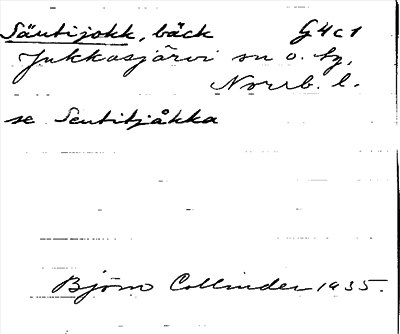 Säutijokk, bäck G4c1
Jukkasjärvi sn o. tg,
Norrb. l.
se Seutitjåkka
Björn Collinder 1935.